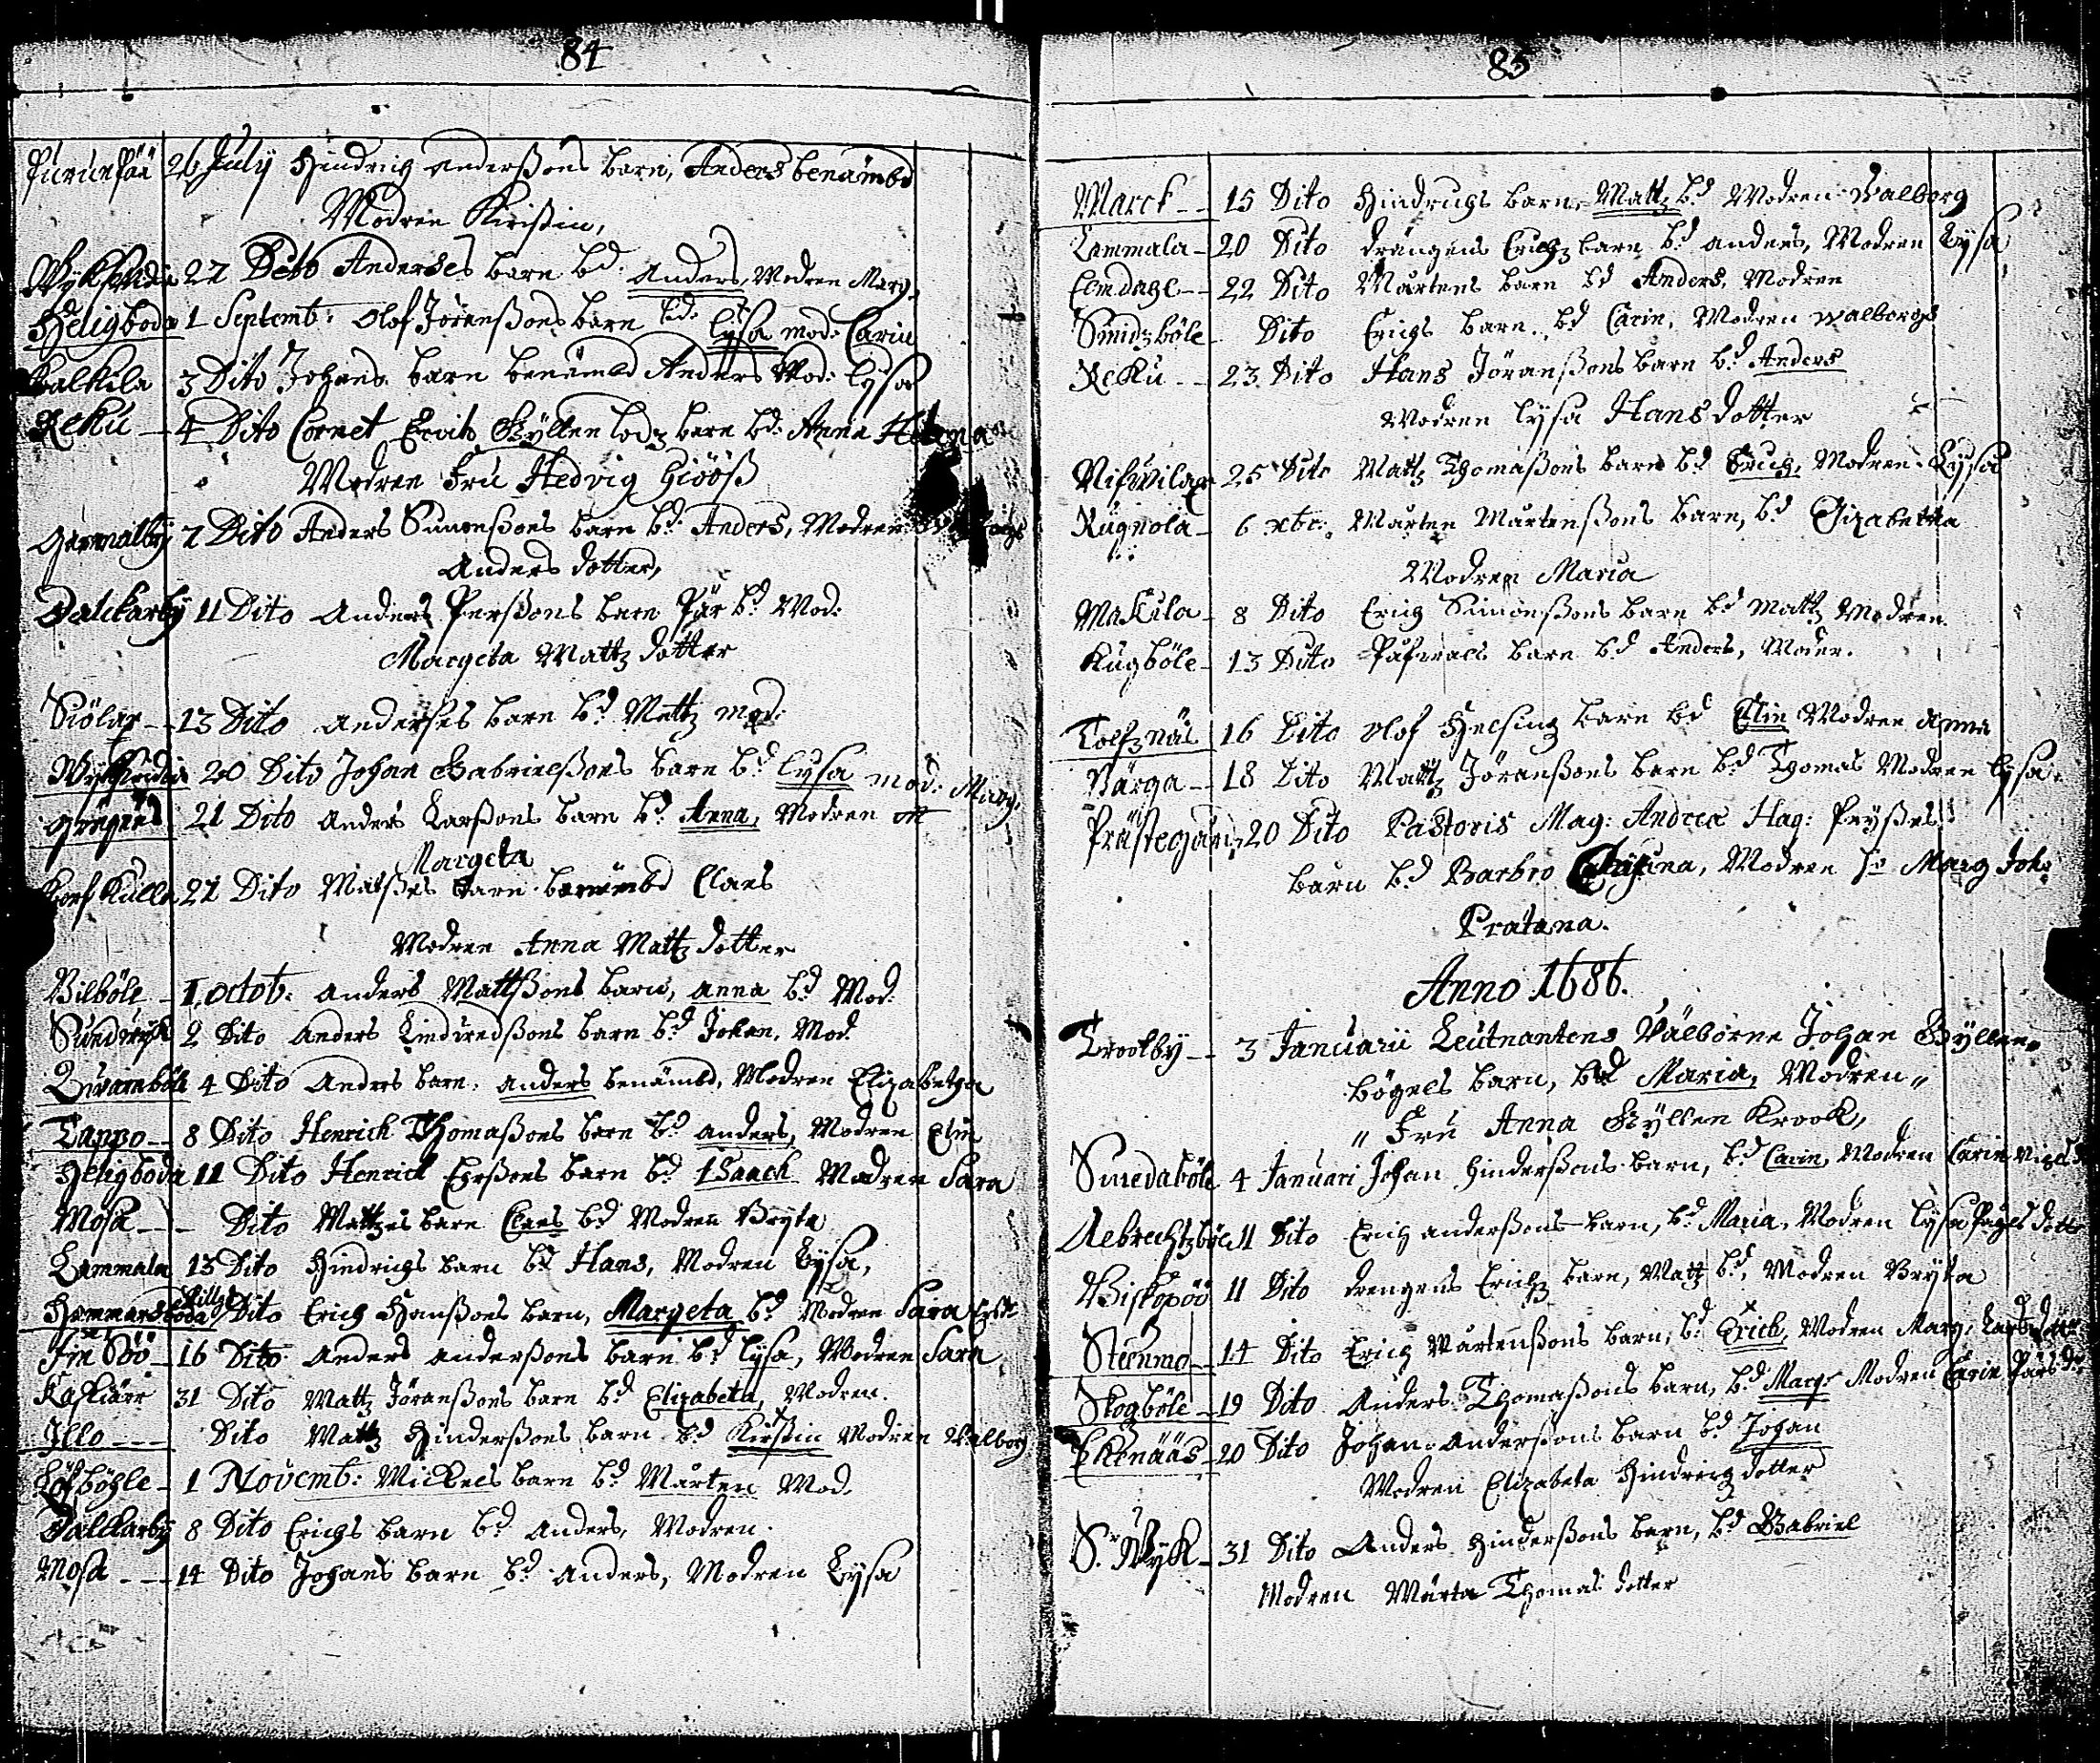 84
26 July Hindrich Anderßons barn, Anders benämbd
Modren Kirstin,
27 Dito Anderses barn bd. Anders, Modren Marg.
Heligboda 1 Septemb: Olof Jöranßons barn bd. Lysa mod: Carin
Balkila 3 Dito Johans barn benämbd Anders Mod: Lysa
Reku 4 Dito Cornet barn bd: Anna Helena
Modren Fru Hedvig Giööß
Germalby 7 Dito Anders Simonßons barn bd. Anders, Modren
Anders dotter,
Dalckarby 11 Dito Anders Perßons barn Pär bd Mod:
Margeta Mattz dotter
Siölax 13 Dito Anderses barn bd. Mattz mod:
20 Dito Johan Gabrielßons barn bd Lysa mod: Marg.
21 Dito Anders Larßons barn bd. Anna, Modren
Margeta
27 Dito Matßes barn benämbd Claes
Modren Anna Mattz dotter
Bilböle 1 Octob: Anders Mattßons barn, Anna bd Mod:
Sundwyk 2 Dito Anders Lindvedßons barn bd Johan. Mod.
4 Dito Anders barn, Anders benämbd, Modren Elizabetha
Tappo 8 Dito Henrich Thomaßons barn bd Anders, Modren Elin
Heligboda 11 Dito Henrich Erßons barn bd. Isaach Modren Sara
Mosa Dito Mattzes barn Claes bd Modren Bryta
Lammala 13 Dito Hindrichs barn bd Hans, Modren Lysa,
Hammarsboda Dito Erich Hanßons barn, Margeta bd Modren Sara
16 Dito Anders Anderßons barn bd Lysa, Modren Sara
Kaskiärr 31 Dito Mattz Jöranßons barn bd Elizabeta, Modren.
Illo Dito Mattz Hinderßons barn bd Kirstin Modren Walborg
Löfböhle 1 Novemb: Mickels barn bd Mårten Mod.
Dalckarby 8 Dito Erichs barn bd Anders, Modren.
Mosa 14 Dito Johans barn bd Anders, Modren Lysa
85
Marck 15 Dito Hindrichs barn, Mattz bd Modren Walborg
Lammala 20 Dito drängens Erichz barn bd Anders, Modren Lysa
Elmdahl 22 Dito Mårtens barn bd Anders, Modren
Smidzböle Dito Erichs barn bd Carin, Modren Walborg
Reku 23 Dito Hans Jöranßons barn bd Anders
Modren Lysa Hans dotter
Nifwilax 25 Dito Mattz Thomaßons barn bd Erich, Modren Lysa
Rugnola 6 xbr: Mårten Mårtenßons barn, bd Elizabetha
Modren Maria
Makila 8 Dito Erich Simonßons barn bd Mattz Modren
Rugböle 13 Dito barn bd Anders, Modr.
Tolfznäs 16 Dito Olof Helsing barn bd Elin Modren Anna
Bärga 18 Dito Mattz Jöranßons barn bd Thomas Modren Lysa
Prästegårn 20 Dito Pastoris Mag: Andreæ Hag:
barn bd Barbro, Modren Marg Joh:
Pratana.
Anno 1686.
Trootby 3 Januarii Leutnantens Wälborne Johan Gyllen-
bögels barn, bd Maria, Modren
Fru Anna Gyllen Krook,
Smedaböle 4 Januari Johan Hinderßons barn, bd Carin, Modren Carin
Aebrechtzböle 11 Dito Erich Anderßons barn, bd Maria, Modren Lysa Pågels dott
Biskopöö 11 Dito drengens Erichz barn, Mattz bd, Modren Bryta
Steenmo 14 Dito Erich Mårtenßons barn, bd Erich, Modren Marg: Lars
Skogböle 19 Dito Anders Thomaßons barn, bd Marg: Modren Carin Pärs
Ekenääs 20 Dito Johan Anderßons barn bd Johan
Modren Elizabeta Hindrichz dotter
S. Wyk 31 Dito Anders Hinderßons barn, bd Gabriel
Modren Märta Thomas dotter